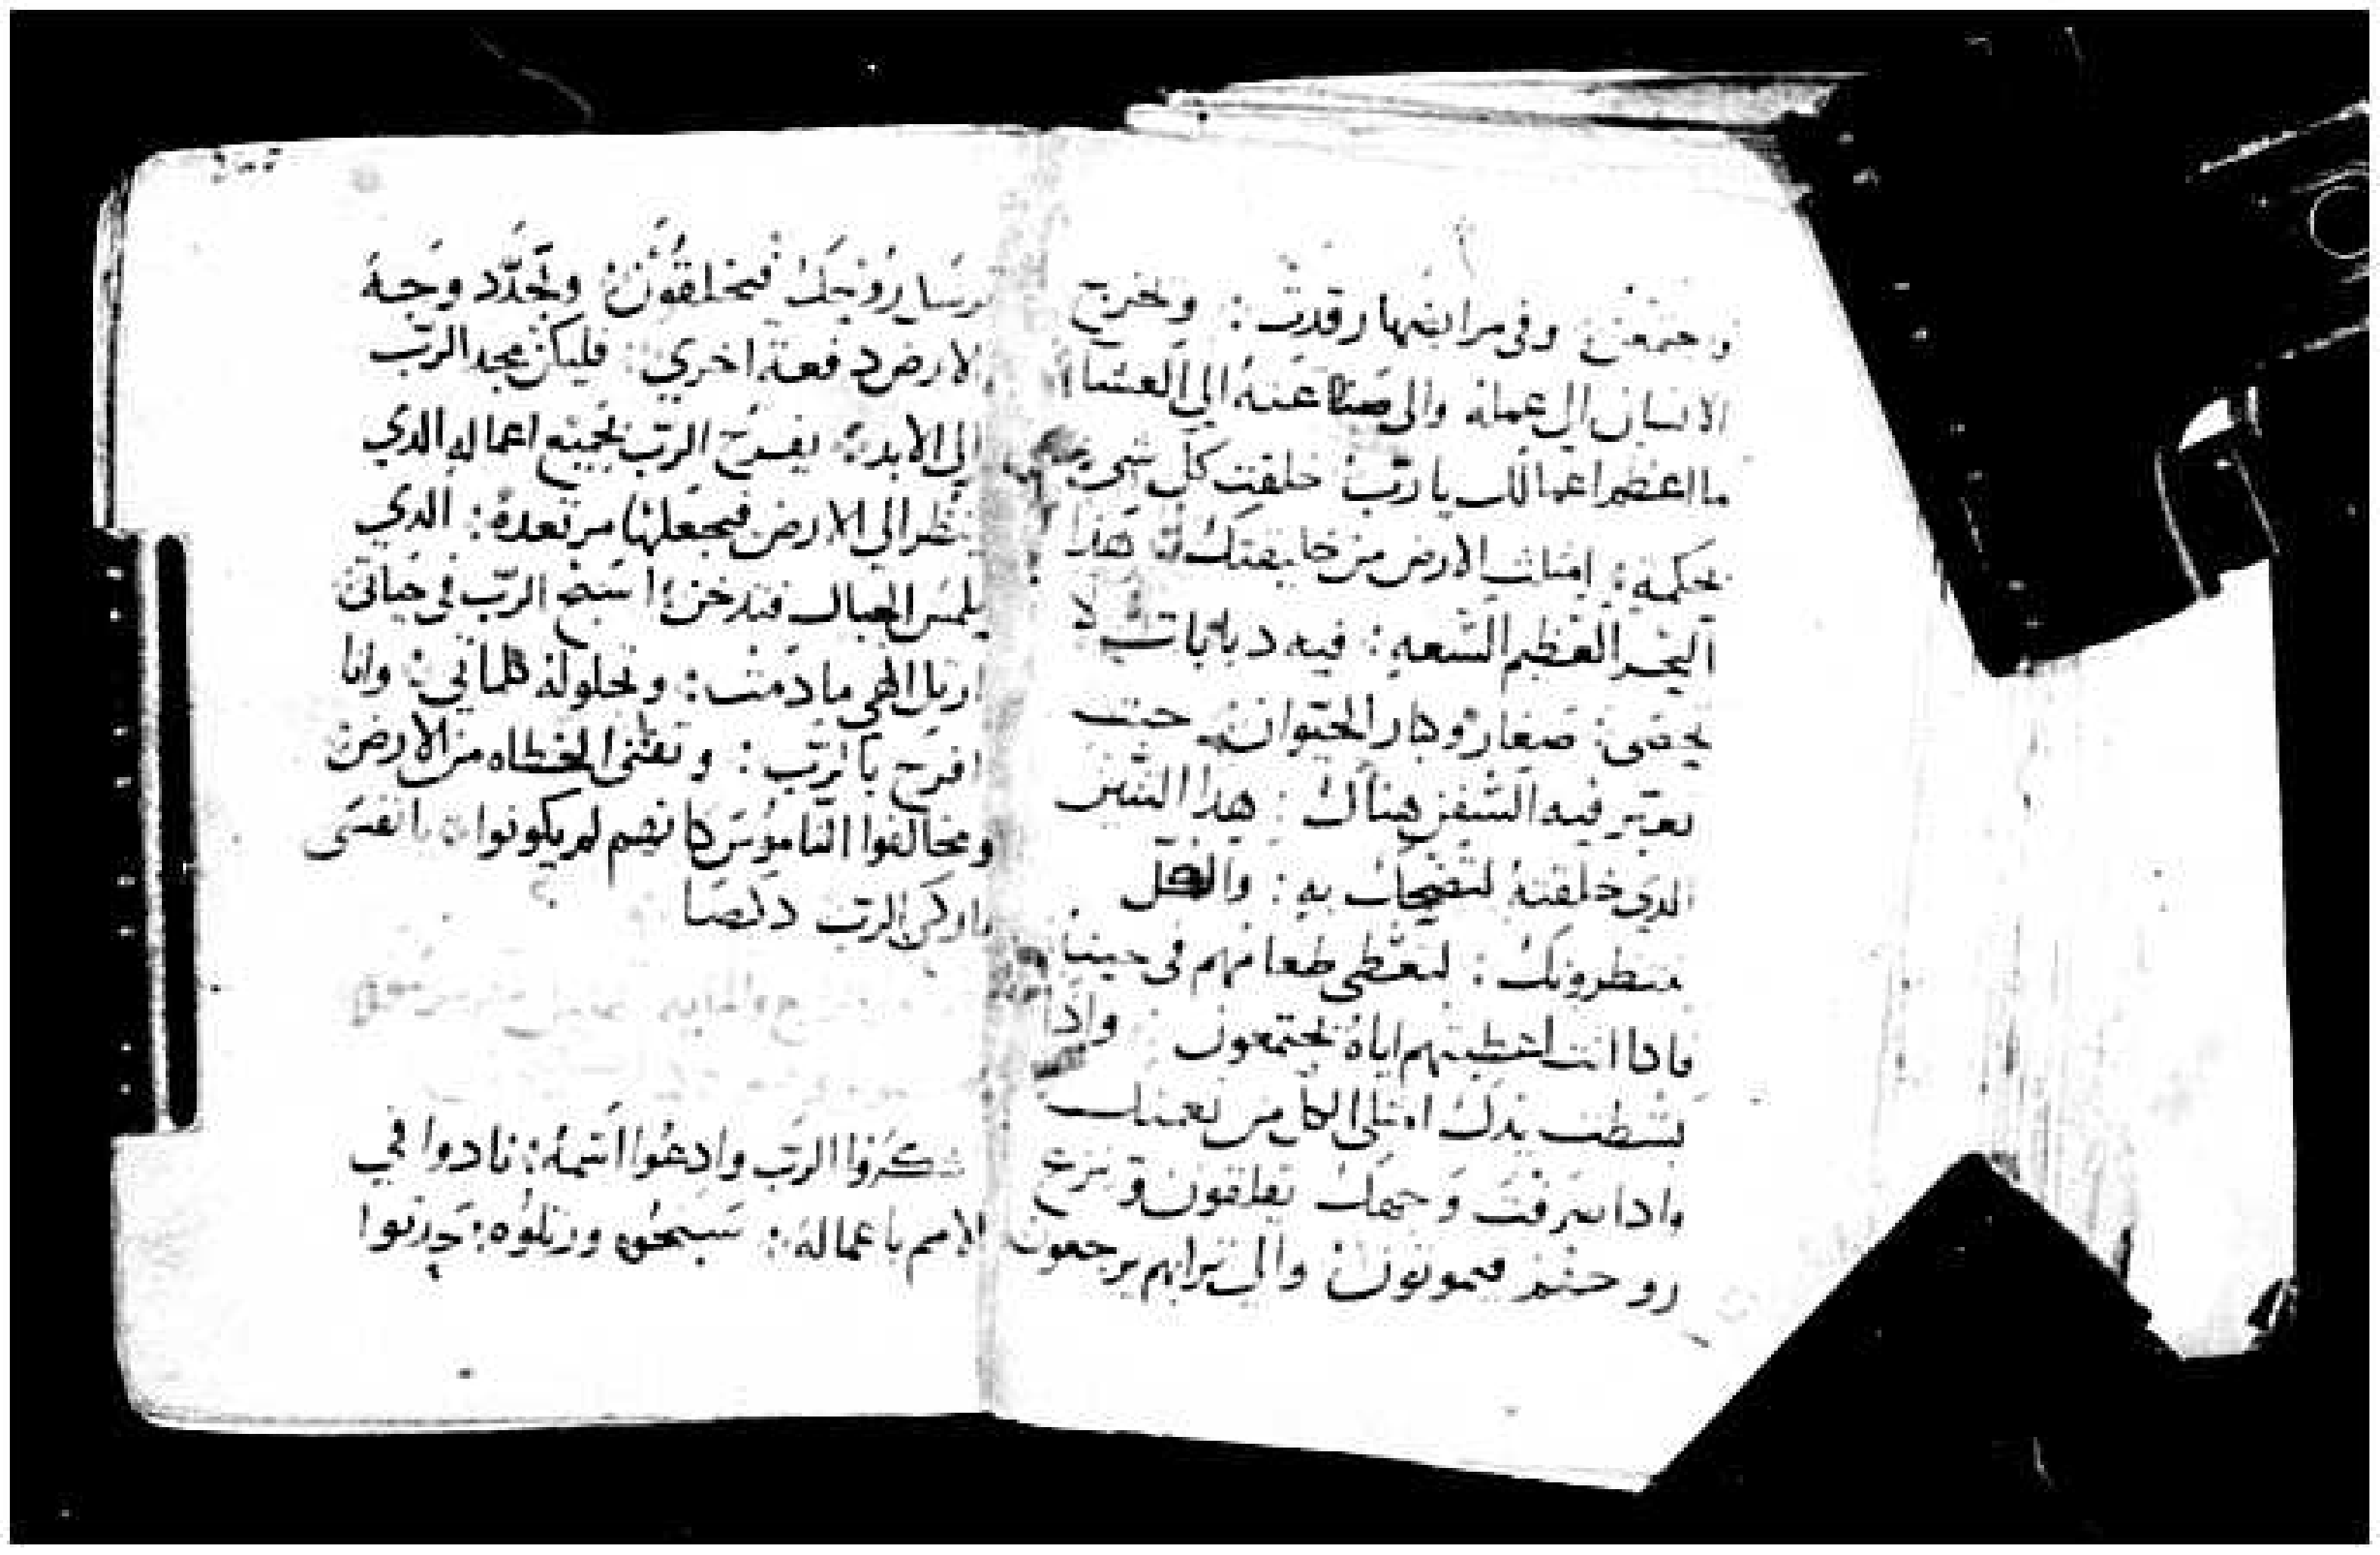 وجتمعن وفي مرابضها رقدت: ويخرج
الانسان الي عمله والي صناعته الي العشاء
ما اعظم اعمالك يا رب خلقت كل شي
بحكمه: امتلت الارض من خليقتك هذا
البحر العظيم السعه: فيه دبابات لا
تحصى: صغار وكبار الحيوان حيت
تعبر فيه السفن هناك: هذا التنين
الدي خلقته لتضحك به: والكل
ينتظرونك: لتعطى طعامهم في حينه
فادا انت اعطيتهم اياه يجتمعون واذا
بسطت يدك امتلى الكل من نعمتك
وادا صرفت وجهك يقلقون وتنزع
روحهم فيموتون والي ترابهم يرجعون
ترسل روحك فيخلقون وتجدد وجه
الارض دفعة اخري: فليكن مجد الرب
الى الابد: يفرح الرب بجميع اعماله الدي
ينظر الي الارض فيجعلها مرتعدة: الدي
يلمس الجبال فتدخن: اسبح الرب في حياتي
ارتل الهي ما دمت: وتحلوله كلماتي: وانا
افرح بالرب: وتفنى الخطاه من الارض
ومخالفوا الناموس كانهم لم يكونوا يا نفسى
باركي الرب
اشكروا الرب وادعوا اسمه: نادوا في
الامم باعماله: سبحوه ورتلوه: حدثوا